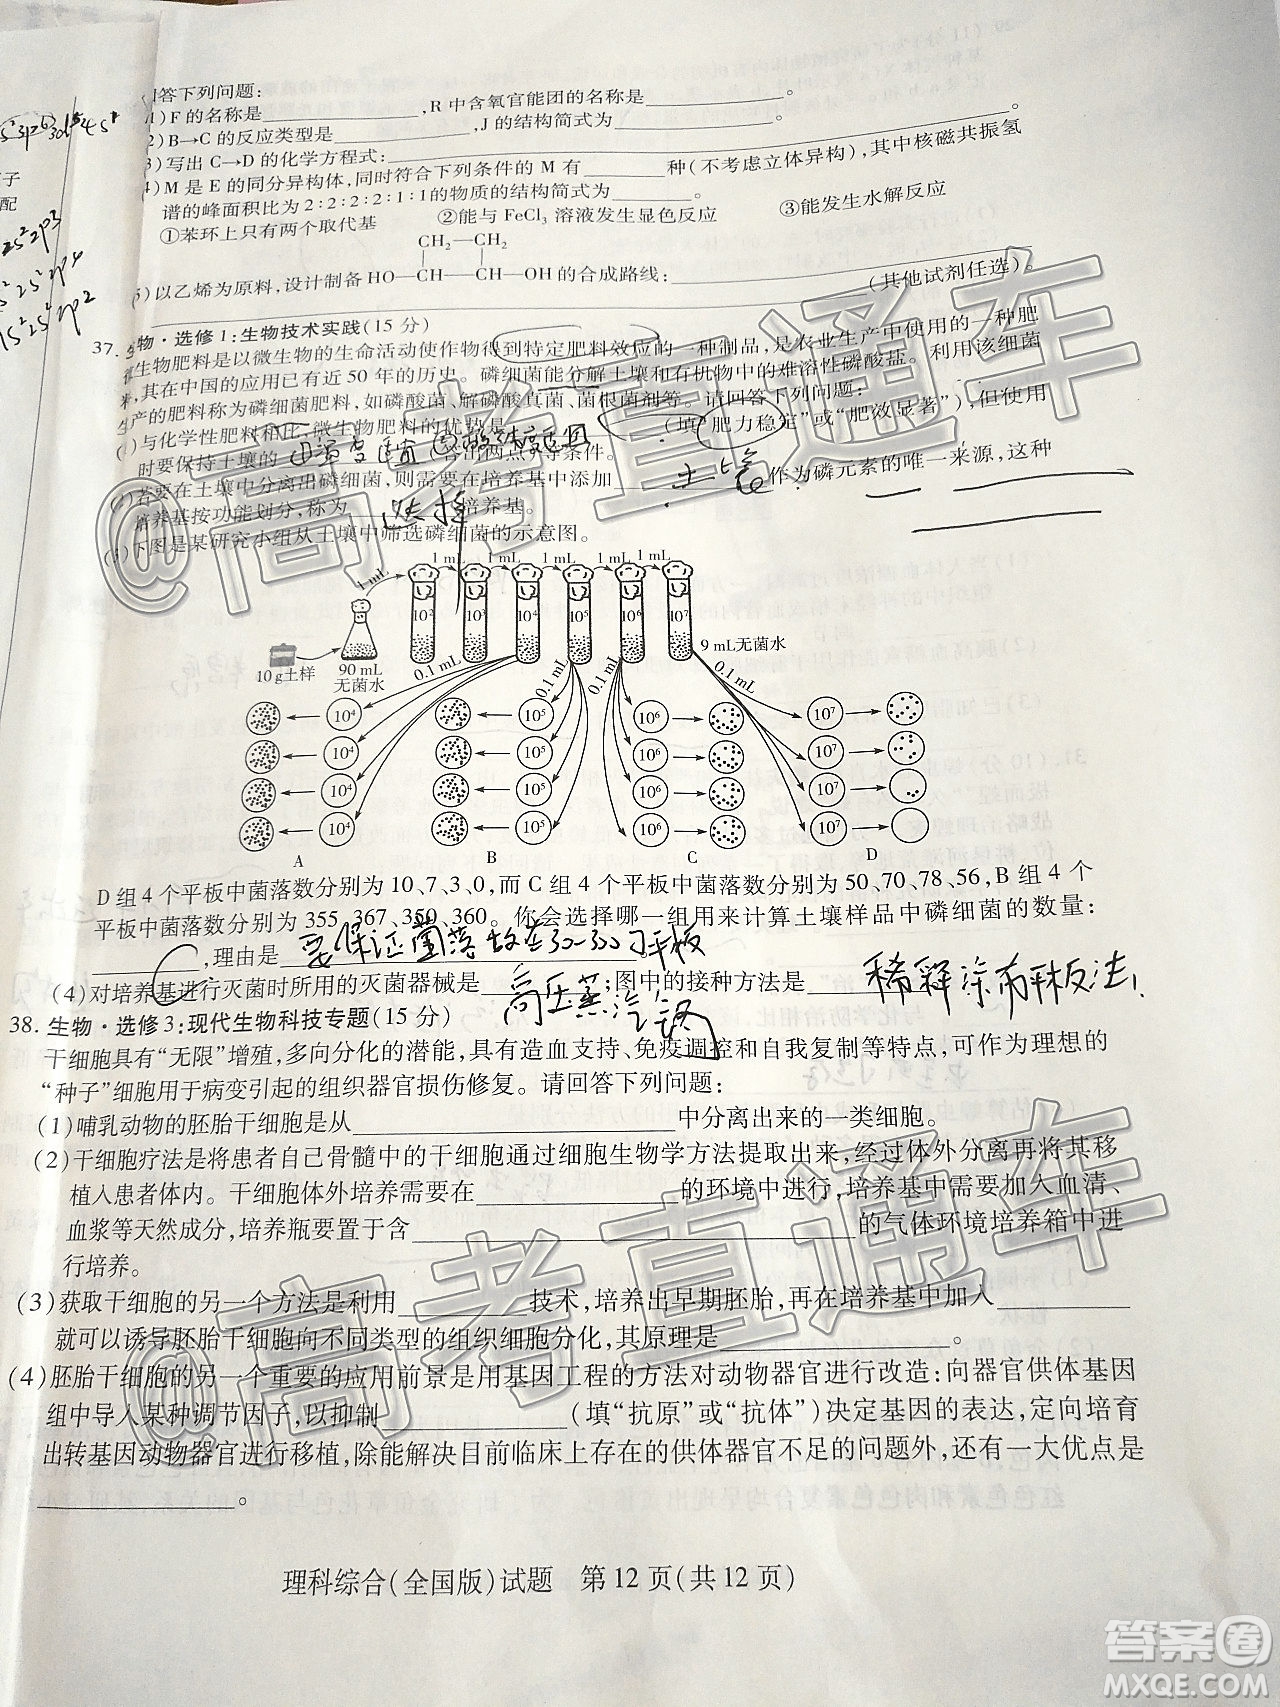 回答下列问题:
(1)F的名称是________,R中含氧官能团的名称是________。
(2)B→C的反应类型是________,J的结构简式为________。
(3)写出C→D的化学方程式:________。
(4)M是E的同分异构体,同时符合下列条件的M有________种(不考虑立体异构),其中核磁共振氢
谱的峰面积比为2:2:2:2:1:1的物质的结构简式为________。
①苯环上只有两个取代基 ②能与FeCl3溶液发生显色反应 ③能发生水解反应
CH2—CH2
(5)以乙烯为原料,设计制备HO—CH—CH—OH的合成路线:________
________(其他试剂任选)。
37. 生物·选修1:生物技术实践(15分)
微生物肥料是以微生物的生命活动使作物得到特定肥料效应的一种制品,是农业生产中使用的一种肥
料,其在中国的应用已有近50年的历史。磷细菌能分解土壤和有机物中的难溶性磷酸盐。利用该细菌
生产的肥料称为磷细菌肥料,如磷酸菌、解磷真菌、菌根菌剂等。请回答下列问题:
(1)与化学性肥料相比,微生物肥料的优势是________(填“肥力稳定”或“肥效显著”),但使用
时要保持土壤的________(答出两点)等条件。
(2)若要在土壤中分离出磷细菌,则需要在培养基中添加________作为磷元素的唯一来源,这种
培养基按功能划分,称为 选择 培养基。
(3)下图是某研究小组从土壤中筛选磷细菌的示意图。
1 mL 1 mL 1 mL 1 mL 1 mL 1 mL
10² 10³ 10⁴ 10⁵ 10⁶ 10⁷
10 g土样 90 mL 无菌水 9 mL无菌水
0.1 mL 0.1 mL 0.1 mL 0.1 mL
10⁴ 10⁵ 10⁶ 10⁷
10⁴ 10⁵ 10⁶ 10⁷
10⁴ 10⁵ 10⁶ 10⁷
10⁴ 10⁵ 10⁶ 10⁷
A B C D
D组4个平板中菌落数分别为10、7、3、0,而C组4个平板中菌落数分别为50、70、78、56,B组4个
平板中菌落数分别为355、367、350、360。你会选择哪一组用来计算土壤样品中磷细菌的数量:
C,理由是 要保证菌落数在30-300的平板。
(4)对培养基进行灭菌时所用的灭菌器械是 高压蒸汽锅;图中的接种方法是 稀释涂布平板法。
38. 生物·选修3:现代生物科技专题(15分)
干细胞具有“无限”增殖,多向分化的潜能,具有造血支持、免疫调控和自我复制等特点,可作为理想的
“种子”细胞用于病变引起的组织器官损伤修复。请回答下列问题:
(1)哺乳动物的胚胎干细胞是从________中分离出来的一类细胞。
(2)干细胞疗法是将患者自己骨髓中的干细胞通过细胞生物学方法提取出来,经过体外分离再将其移
植入患者体内。干细胞体外培养需要在________的环境中进行,培养基中需要加入血清、
血浆等天然成分,培养瓶要置于含________的气体环境培养箱中进
行培养。
(3)获取干细胞的另一个方法是利用________技术,培养出早期胚胎,在培养基中加入________
就可以诱导胚胎干细胞向不同类型的组织细胞分化,其原理是________。
(4)胚胎干细胞的另一个重要的应用前景是用基因工程的方法对动物器官进行改造:向器官供体基因
组中导入某种调节因子,以抑制________(填“抗原”或“抗体”)决定基因的表达,定向培育
出转基因动物器官进行移植,除能解决目前临床上存在的供体器官不足的问题外,还有一大优点是
________。
理科综合(全国版)试题 第12页(共12页)
@高考直通车
@高考直通车
答案圈
MXQE.COM